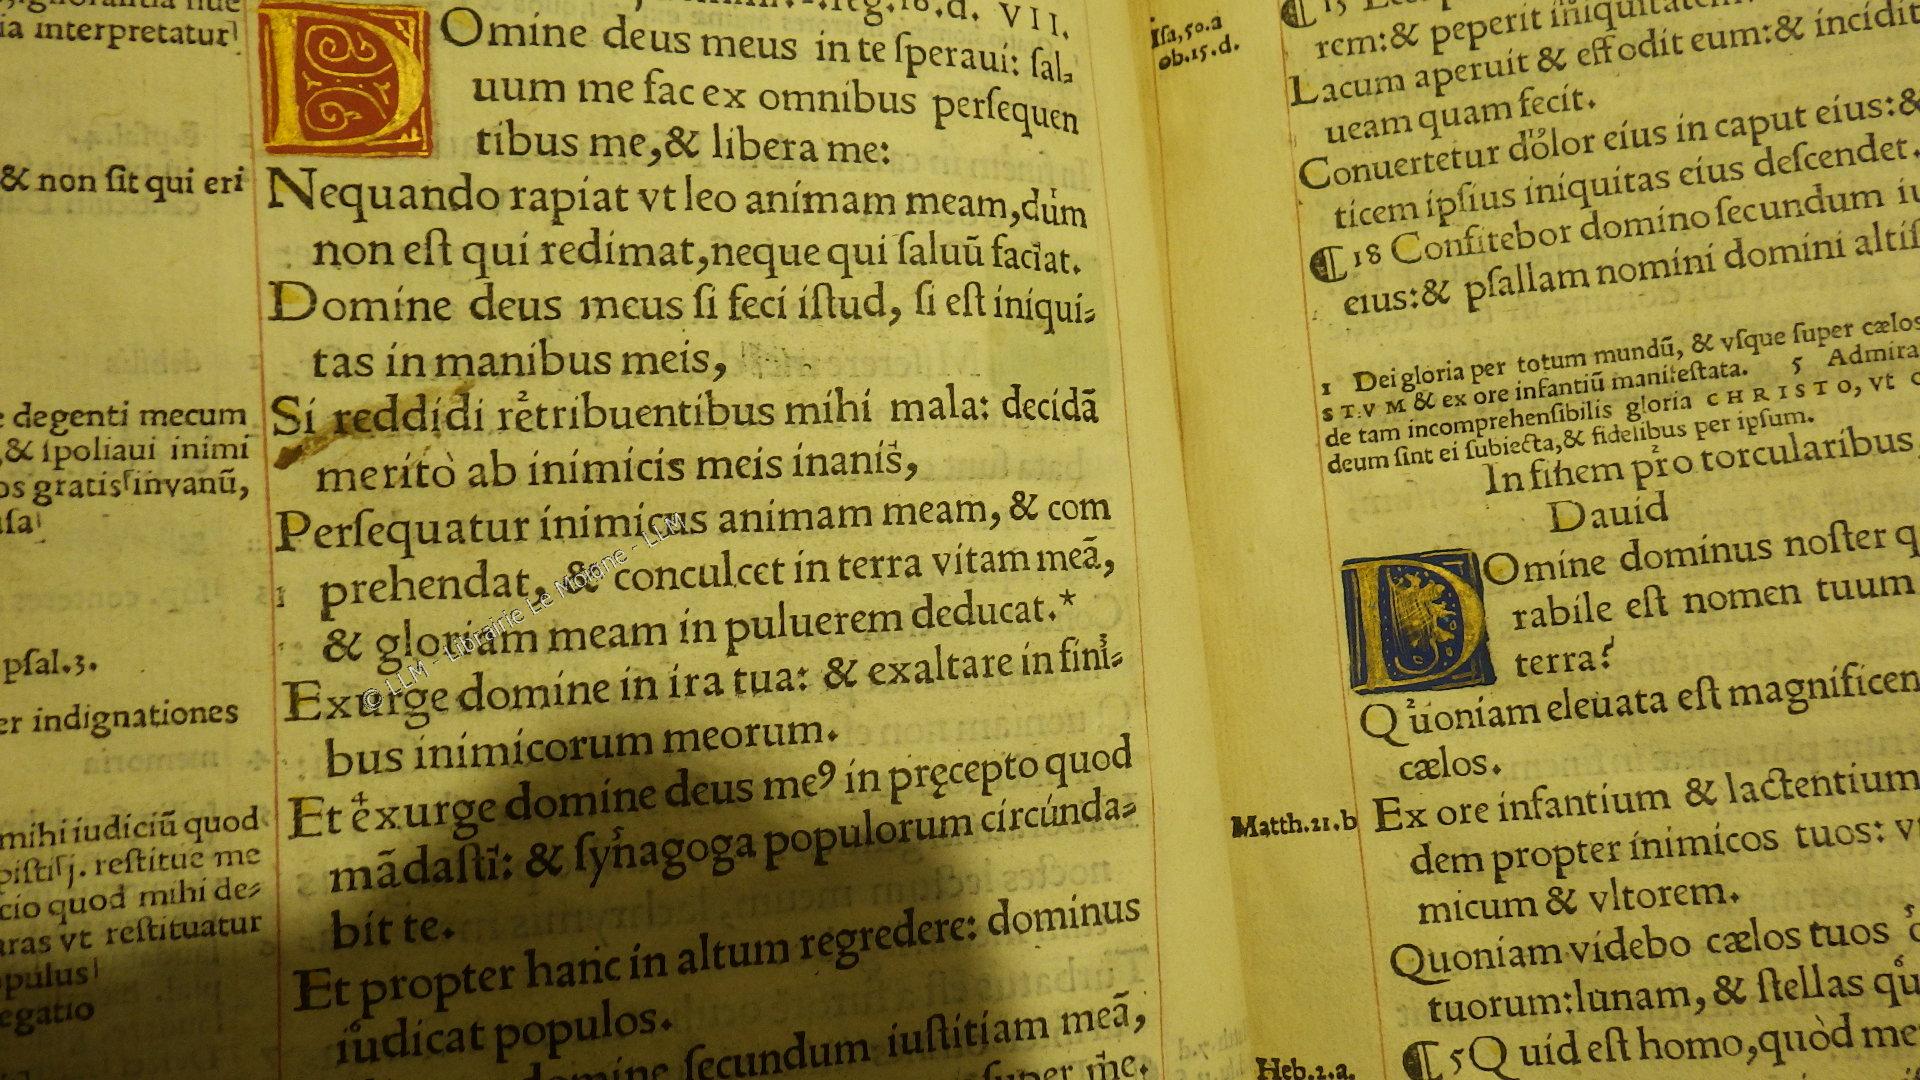 ia interpretatur
& non sit qui eri
degenti mecum
,& spoliaui inimi
os gratis invanũ,
psal.3.
er indignationes
mihi iudiciũ quod
restitue me
cio quod mihi de⸗
aras vt restituatur
opulus
egatio
VII.
DOmine deus meus in te ſperaui: ſal⸗
uum me fac ex omnibus perſequen
tibus me,& libera me:
Nequando rapiat vt leo animam meam,dum
non eſt qui redimat,neque qui ſaluũ faciat.
Domine deus meus ſi feci iſtud, ſi eſt iniqui⸗
tas in manibus meis,
Si reddidi retribuentibus mihi mala: decidã
meritò ab inimicis meis inanis,
Perſequatur inimicus animam meam, & com
prehendat, & conculcet in terra vitam meã,
& gloriam meam in puluerem deducat.*
Exurge domine in ira tua: & exaltare in fini⸗
bus inimicorum meorum.
Et exurge domine deus meꝰ in pręcepto quod
mãdaſti: & ſynagoga populorum circúnda⸗
bit te.
Et propter hanc in altum regredere: dominus
iudicat populos.
domine ſecundum iuſtitiam meã,
ſuper me.
© LLM - Librairie Le Moigne - LLM
Iſa,50.a
ob.15.d.
rem:& peperit iniquitatem
Lacum aperuit & effodit eum:& incidit
ueam quam fecit.
Conuertetur dolor eius in caput eius:&
ticem ipſius iniquitas eius deſcendet.
¶18 Confitebor domino ſecundum iu
eius:& pſallam nomini domini altiſ
1 Dei gloria per totum mundũ, & vſque ſuper cælos
ST.VM & ex ore infantiũ manifeſtata. 5 Admira
de tam incomprehenſibilis gloria CHRISTO, vt
deum ſint ei ſubiecta,& fidelibus per ipſum.
In finem pro torcularibus,
Dauid
DOmine dominus noſter q
rabile eſt nomen tuum
terra?
Quoniam eleuata eſt magnificen
cælos.
Matth.21.b
Ex ore infantium & lactentium
dem propter inimicos tuos: v
micum & vltorem.
Quoniam videbo cælos tuos
tuorum:lunam, & ſtellas qu
Heb.2.a.
¶5 Quid eſt homo,quòd me